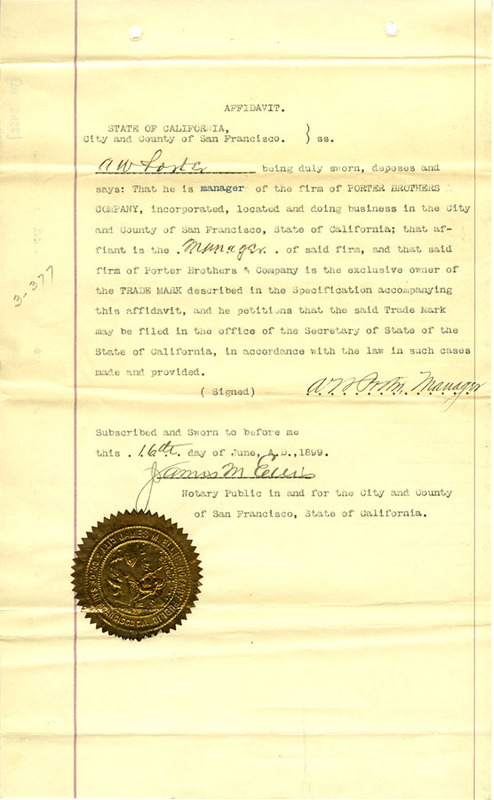 AFFIDAVIT.
STATE OF CALIFORNIA,
City and County of San Francisco. ) ss.
A W Porter being duly sworn, deposes and
says: That he is manager of the firm of PORTER BROTHERS
COMPANY, incorporated, located and doing business in the City
and County of San Francisco, State of California; that af-
fiant is the .Manager. . of said firm, and that said
firm of Porter Brothers & Company is the exclusive owner of
the TRADE MARK described in the Specification accompanying
this affidavit, and he petitions that the said Trade Mark
may be filed in the office of the Secretary of State of the
State of California, in accordance with the law in such cases
made and provided.
(Signed) A W Porter, Manager
3-377
Subscribed and Sworn to before me
this .16th. day of June, A.D.,1899.
James M Ellis
Notary Public in and for the City and County
of San Francisco, State of California.